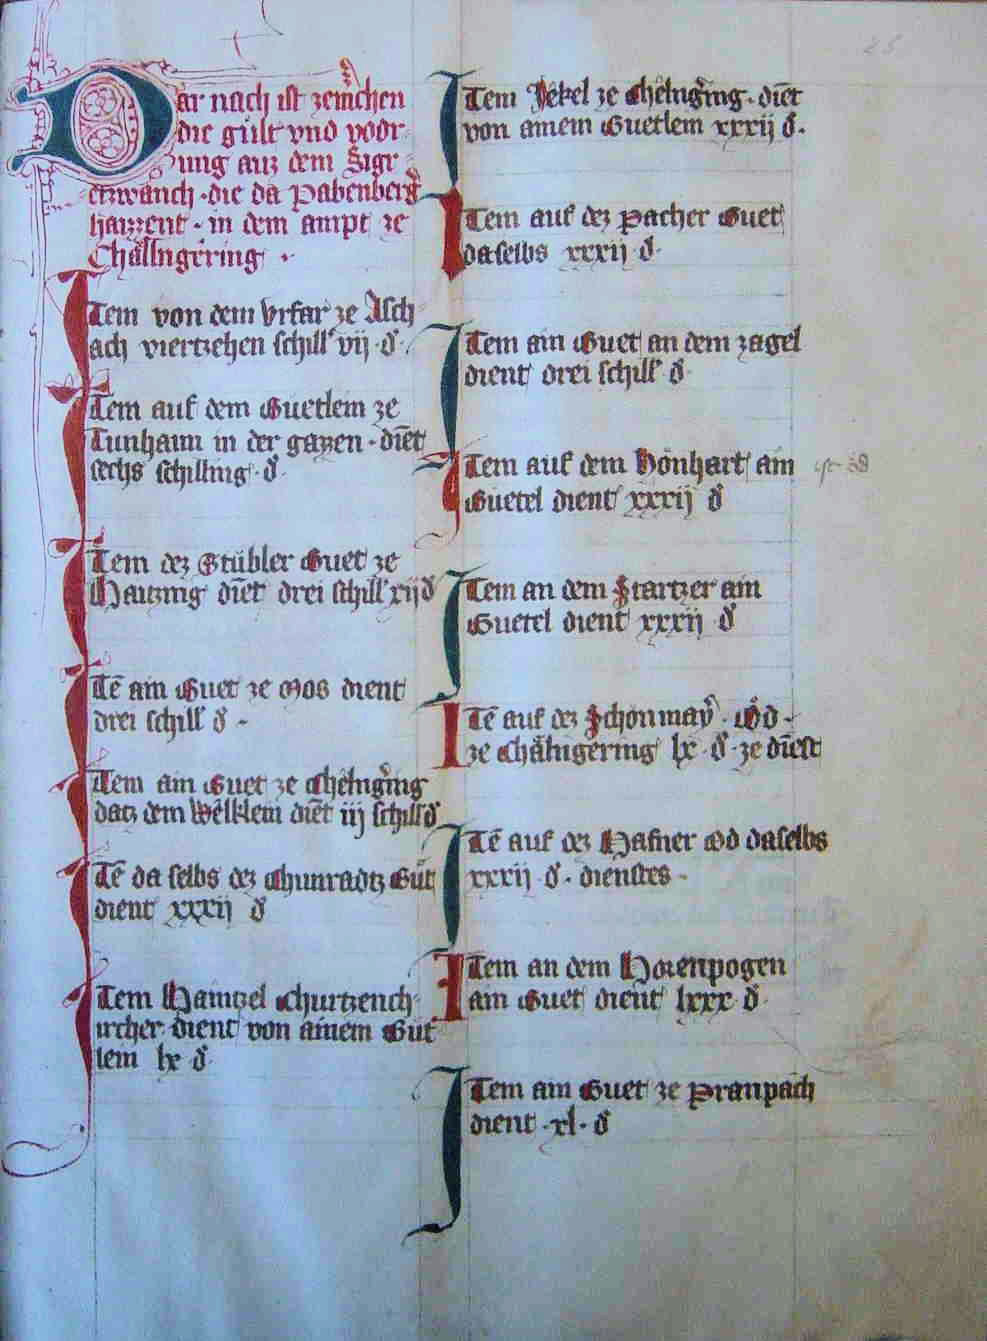 Dar nach ist ze merchen
die gült vnd vodr-
ung auz dem Sigr-
etzwanch · die da Pabenberg̃
hayzzent · in dem ampt ze
Chälngering ·
Item von dem Vrfar ze Asch-
ach viertzehen schill vij · ₰ ·
Item auf dem Guetlein ze
Tunhaim in der gazzen · diēt
sechs schilling · ₰ ·
Item dez Stübler Guet ze
Haitzing diēt drei schill xij ₰
Itē ain Guet ze Mos dient
drei schill ₰ ·
Item ain Guet ze Chelng̃ing
datz dem Welklein diēt iij schill ₰
Itē da selbs dez Chunradtz Güt
dient xxxij ₰
Item Haintzel Churtzench-
ircher dient von ainem Güt
lein lx ₰ ·
Item Jekel ze Chelng̃ing · diēt
von ainem Guetlein xxxij ₰ ·
Item auf dez Pacher Guet
daselbs xxxij ₰ ·
Item ain Guet an dem zagel
dient drei schill ₰ ·
Item auf dem Hönhart ain
Guetel dient xxxij ₰
Item an dem Startzer ain
Guetel dient xxxij ₰
Itē auf dez Schonmaỹ · Ö̈d ·
ze Chälngering lx · ₰ · ze diēst
Itē auf dez Hafner Öd daselbs
xxxij ₰ · dienstes ·
Item an dem Horenpogen
ain Guet dient lxxx ₰ ·
Item ain Guet ze Pranpach
dient · xl · ₰